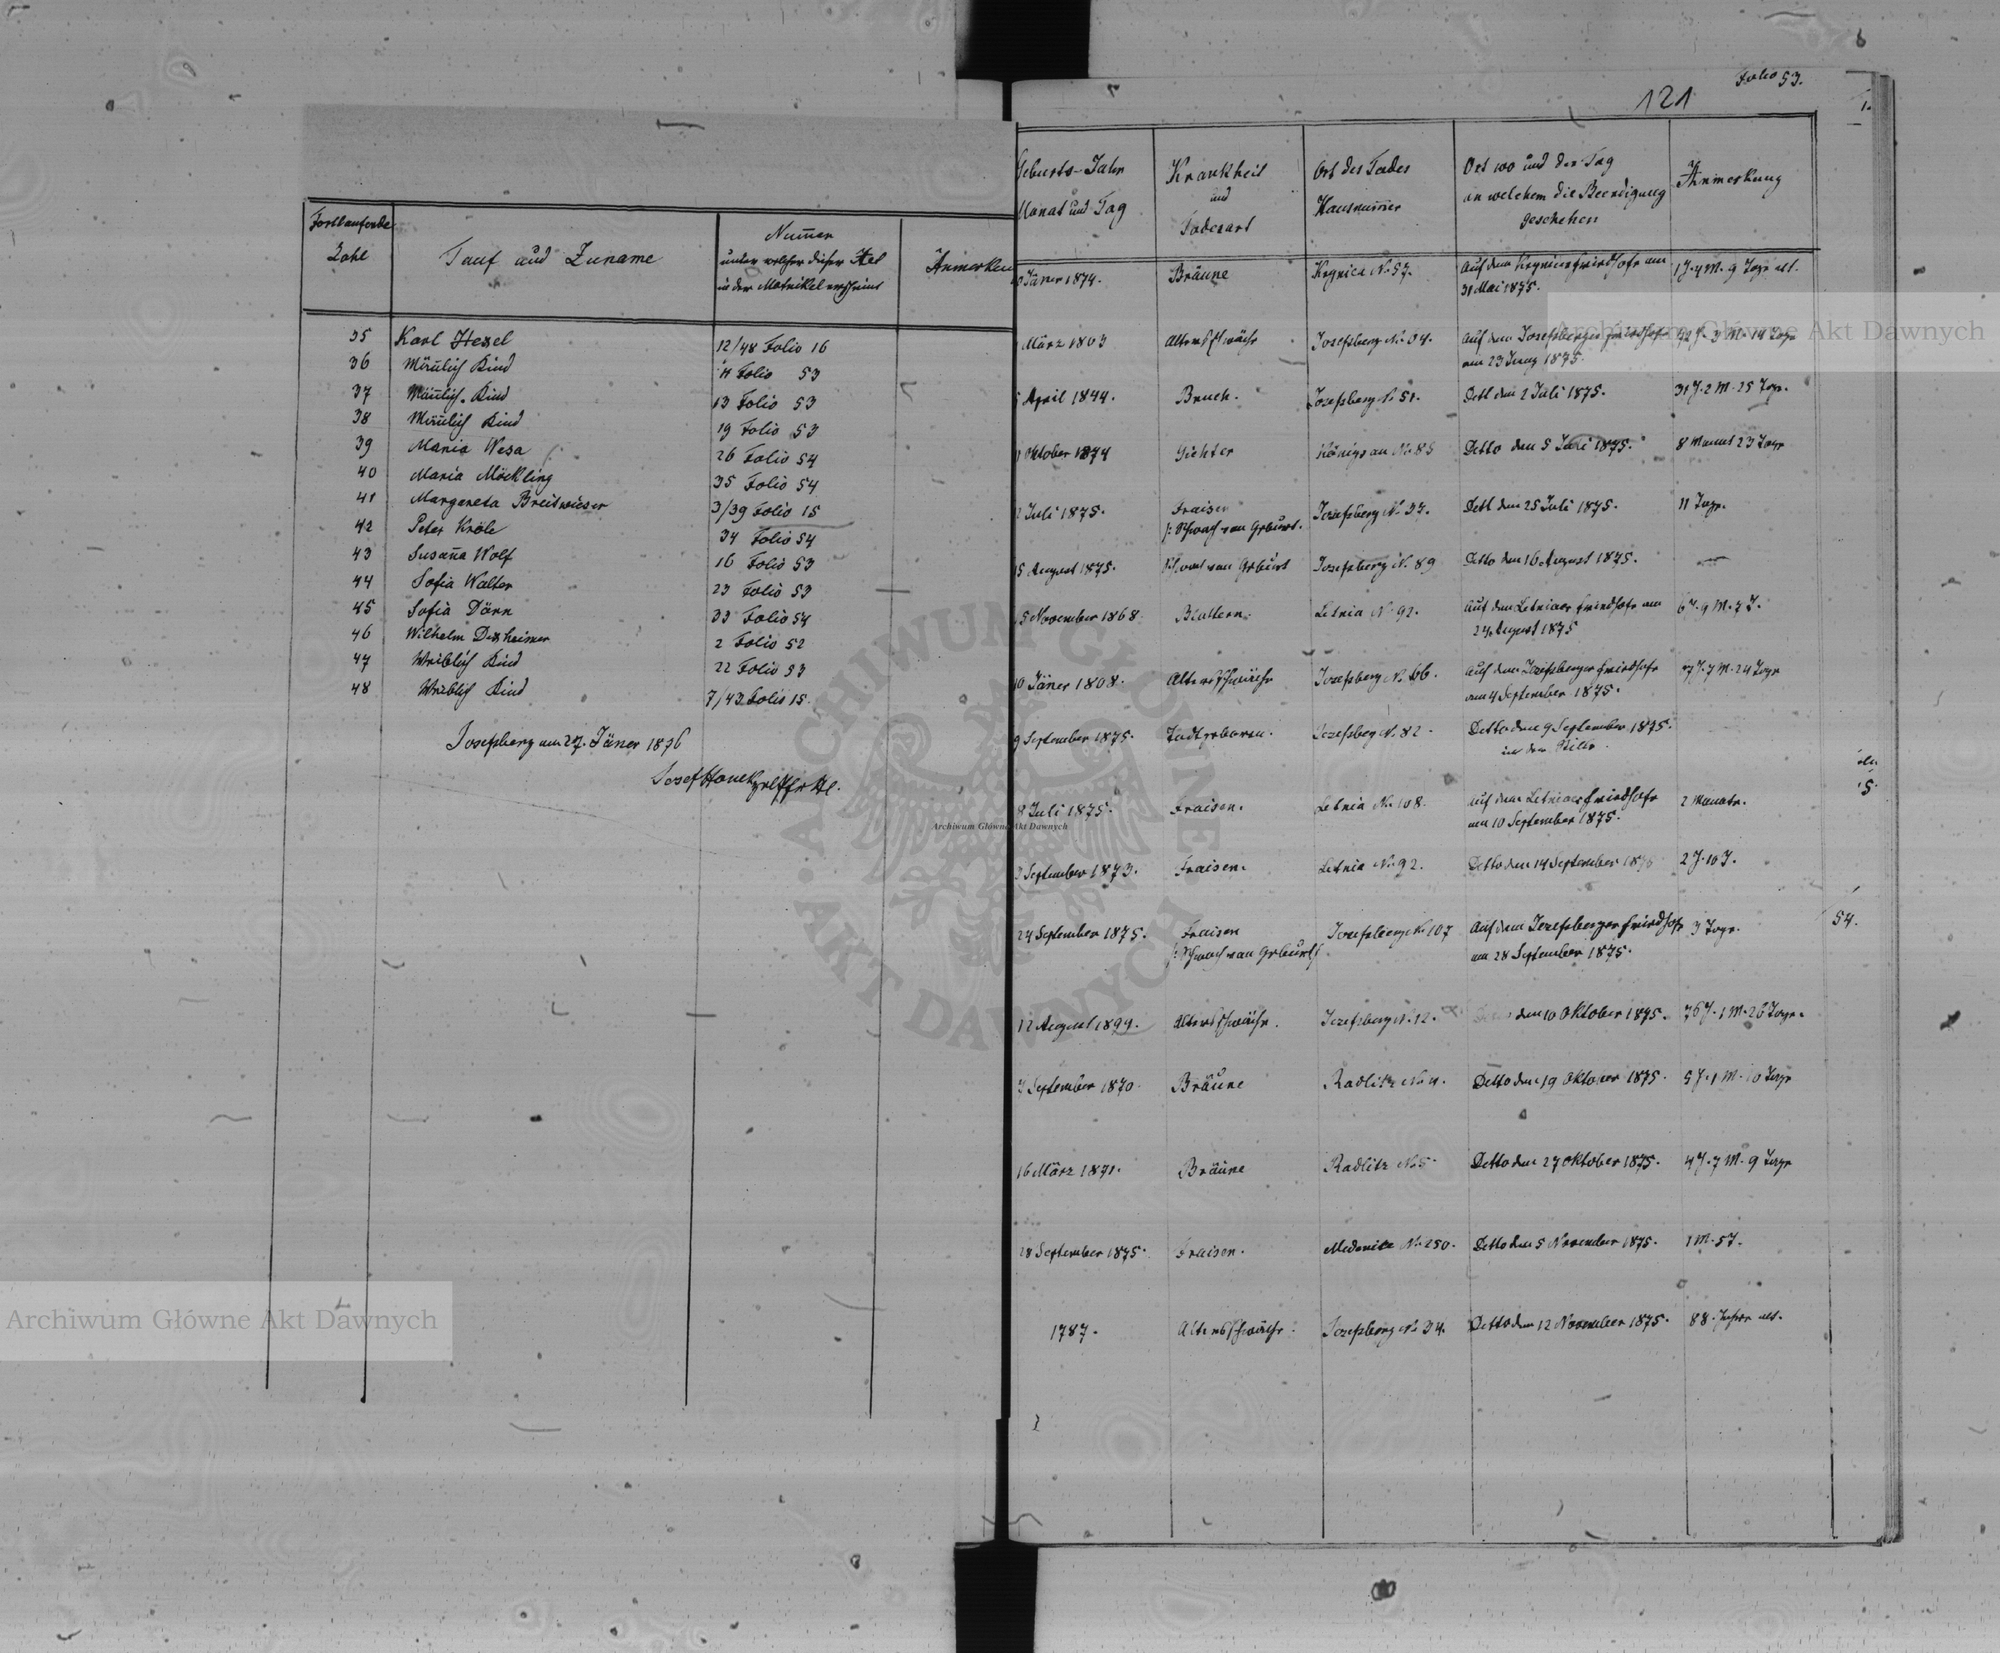 Fortlaufende Zahl
Tauf und Zuname
Numer
unter welcher dieser Akt
in der Matrikel erscheint
Anmerkun
35 Karl Hezel 12/48 Folio 16
36 Mänlich Kind 11 Folio 53
37 Mänlich Kind 13 Folio 53
38 Mänlich Kind 19 Folio 53
39 Maria Wesa 26 Folio 54
40 Maria Möckling 35 Folio 54
41 Margareta Breitwieser 3/39 Folio 15
42 Peter Kröle 34 Folio 54
43 Susana Wolf 16 Folio 53
44 Sofia Walter 23 Folio 53
45 Sofia Dörn 33 Folio 54
46 Wilhelm Dezheimer 2 Folio 52
47 Weiblich Kind 22 Folio 53
48 Weiblich Kind 7/43 Folio 15
Josefsberg am 27. Jäner 1876
Josef
Folio 53.
121
Geburts-Jahr
Monat und Tag
Krankheit
und
Todesart
Ort des Todes
Hausnumer
Ort wo und der Tag
an welchem die Beerdigung
geschehen
Anmerkung
Jäner 1874. Bräune Krynica No 57. Auf dem Krynicaer Friedhofe am 1 J. 4 M. 9 Tage alt.
31 Mai 1875.
März 1803 Altersschwäche Josefsberg No 04. Auf dem Josefsberger Friedhofe 72 J. 3 M. 14 Tage
am 23 Juny 1875.
April 1844. Bruch. Josefsberg No 51. Dett den 2 Juli 1875. 31 J. 2 M. 25 Tage.
Oktober 1874 Gichter Königsau No 85 Detto den 5 Juli 1875. 8 Monat 23 Tage
Juli 1875. Fraisen Josefsberg No 37. Dett den 25 Juli 1875. 11 Tage.
/: Schwach von Geburt.
5 August 1875. Schwach von Geburt Josefsberg No 89 Detto den 16 August 1875.
5 November 1868 Blattern. Letnia No 92. Auf dem Letniaer Friedhofe am 6 J. 9 M. 7 T.
24 August 1875
10 Jäner 1808. Altersschwäche Josefsberg No 66. Auf dem Josefsberger Friedhofe J. 7 M. 24 Tage
am 4 September 1875.
9 September 1875. Todtgeboren. Josefsberg No 82. Detto den 9 September 1875.
in der Stille.
8 Juli 1875. Fraisen. Letnia No 108. Auf dem Letniaer Friedhofe 2 Monate.
am 10 September 1875.
September 1873. Fraisen. Letnia No 92. Detto den 14 September 1875 2 J. 10 T.
24 September 1875. Fraisen Josefsberg No 107 Auf dem Josefsberger Friedhofe 3 Tage.
/: Schwach von Geburt :/ am 28 September 1875.
12 August 1899. Altersschwäche. Josefsberg No 12. den 10 Oktober 1875. 76 J. 1 M. 26 Tage.
September 1870. Bräune Radlitz No 4. Detto den 19 Oktober 1875. 5 J. 1 M. 10 Tage
16 März 1871. Bräune Radlitz No 5 Detto den 27 Oktober 1875. 4 J. 7 M. 9 Tage
28 September 1875. Fraisen. Medenitz No 250. Detto den 5 November 1875. 1 M. 5 T.
1787. Altersschwäche. Josefsberg No 34. Detto den 12 November 1875. 88 Jahre alt.
54.
Archiwum Główne Akt Dawnych
Archiwum Główne Akt Dawnych
Archiwum Główne Akt Dawnych
ARCHIWUM GŁÓWNE · AKT DAWNYCH ·